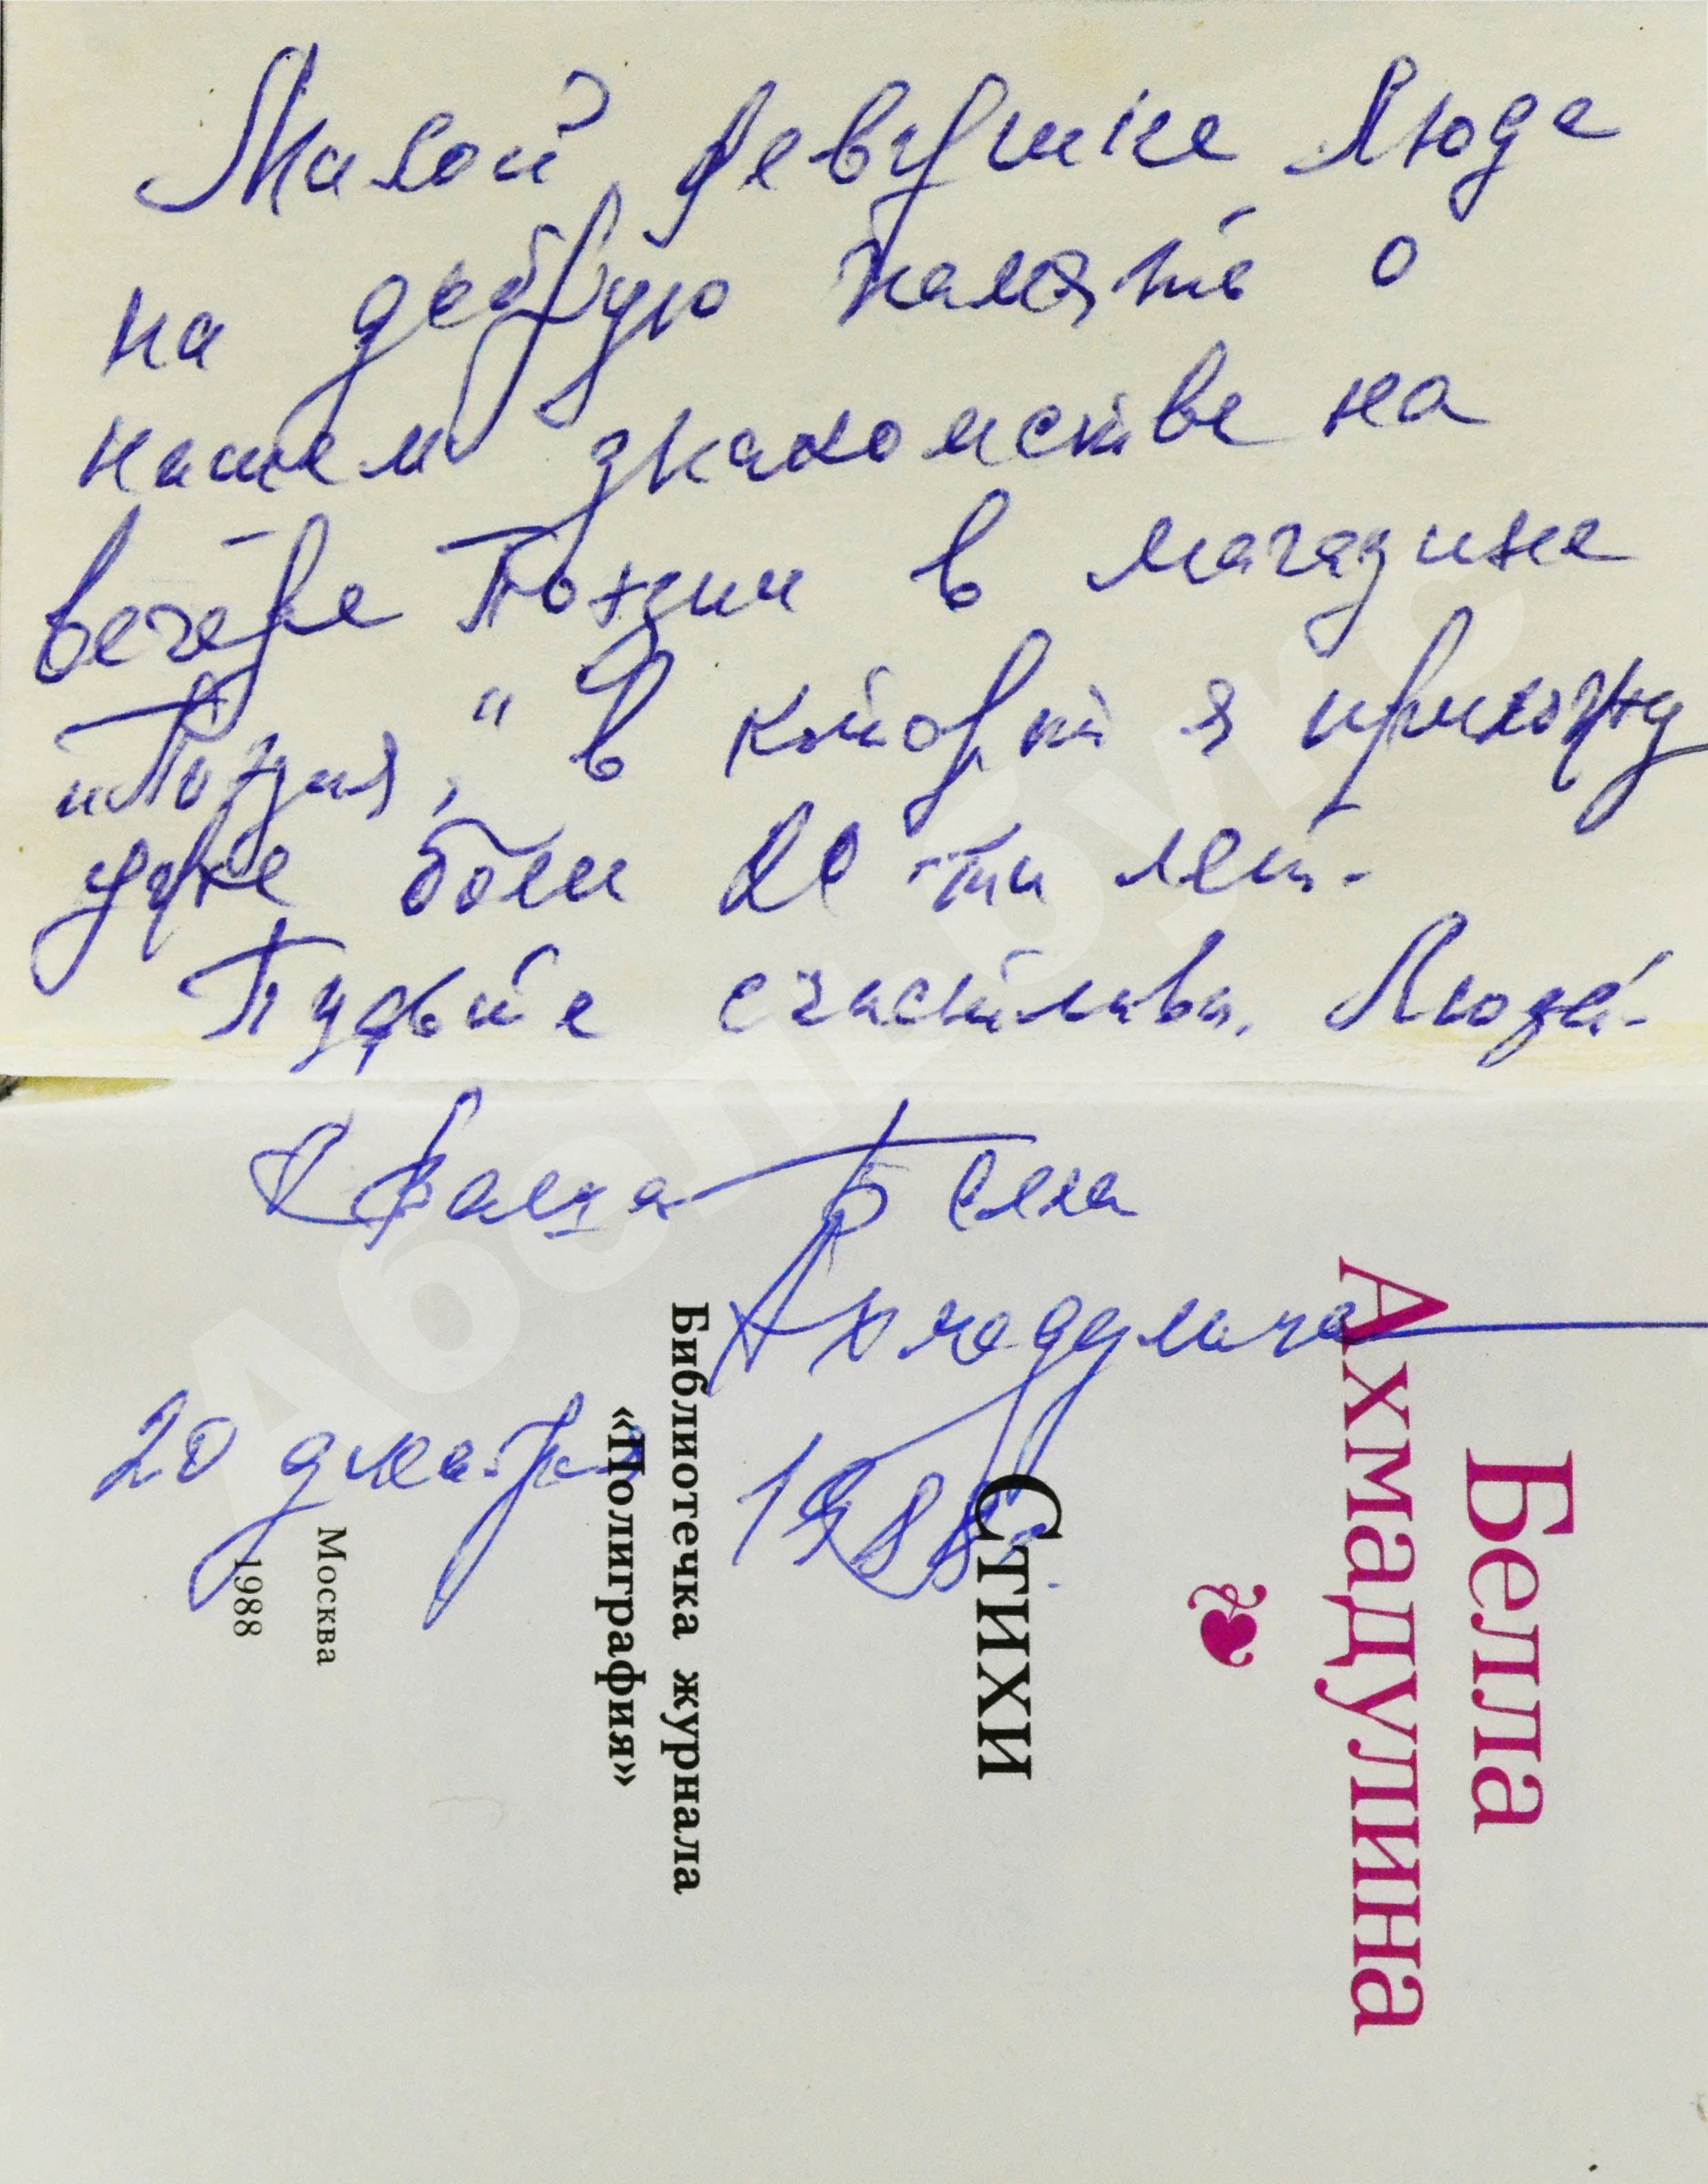 Милой девушке Люде
на добрую память о
нашем знакомстве на
вечере Поэзии в магазине
"Поэзия," в который я прихожу
уже более 20-ти лет.
Будьте счастливы, Люда.
Ваша Белла
Ахмадулина
20 декабря 1988
Белла
Ахмадулина
Стихи
Библиотечка журнала
«Полиграфия»
Москва
1988
Абельбукс